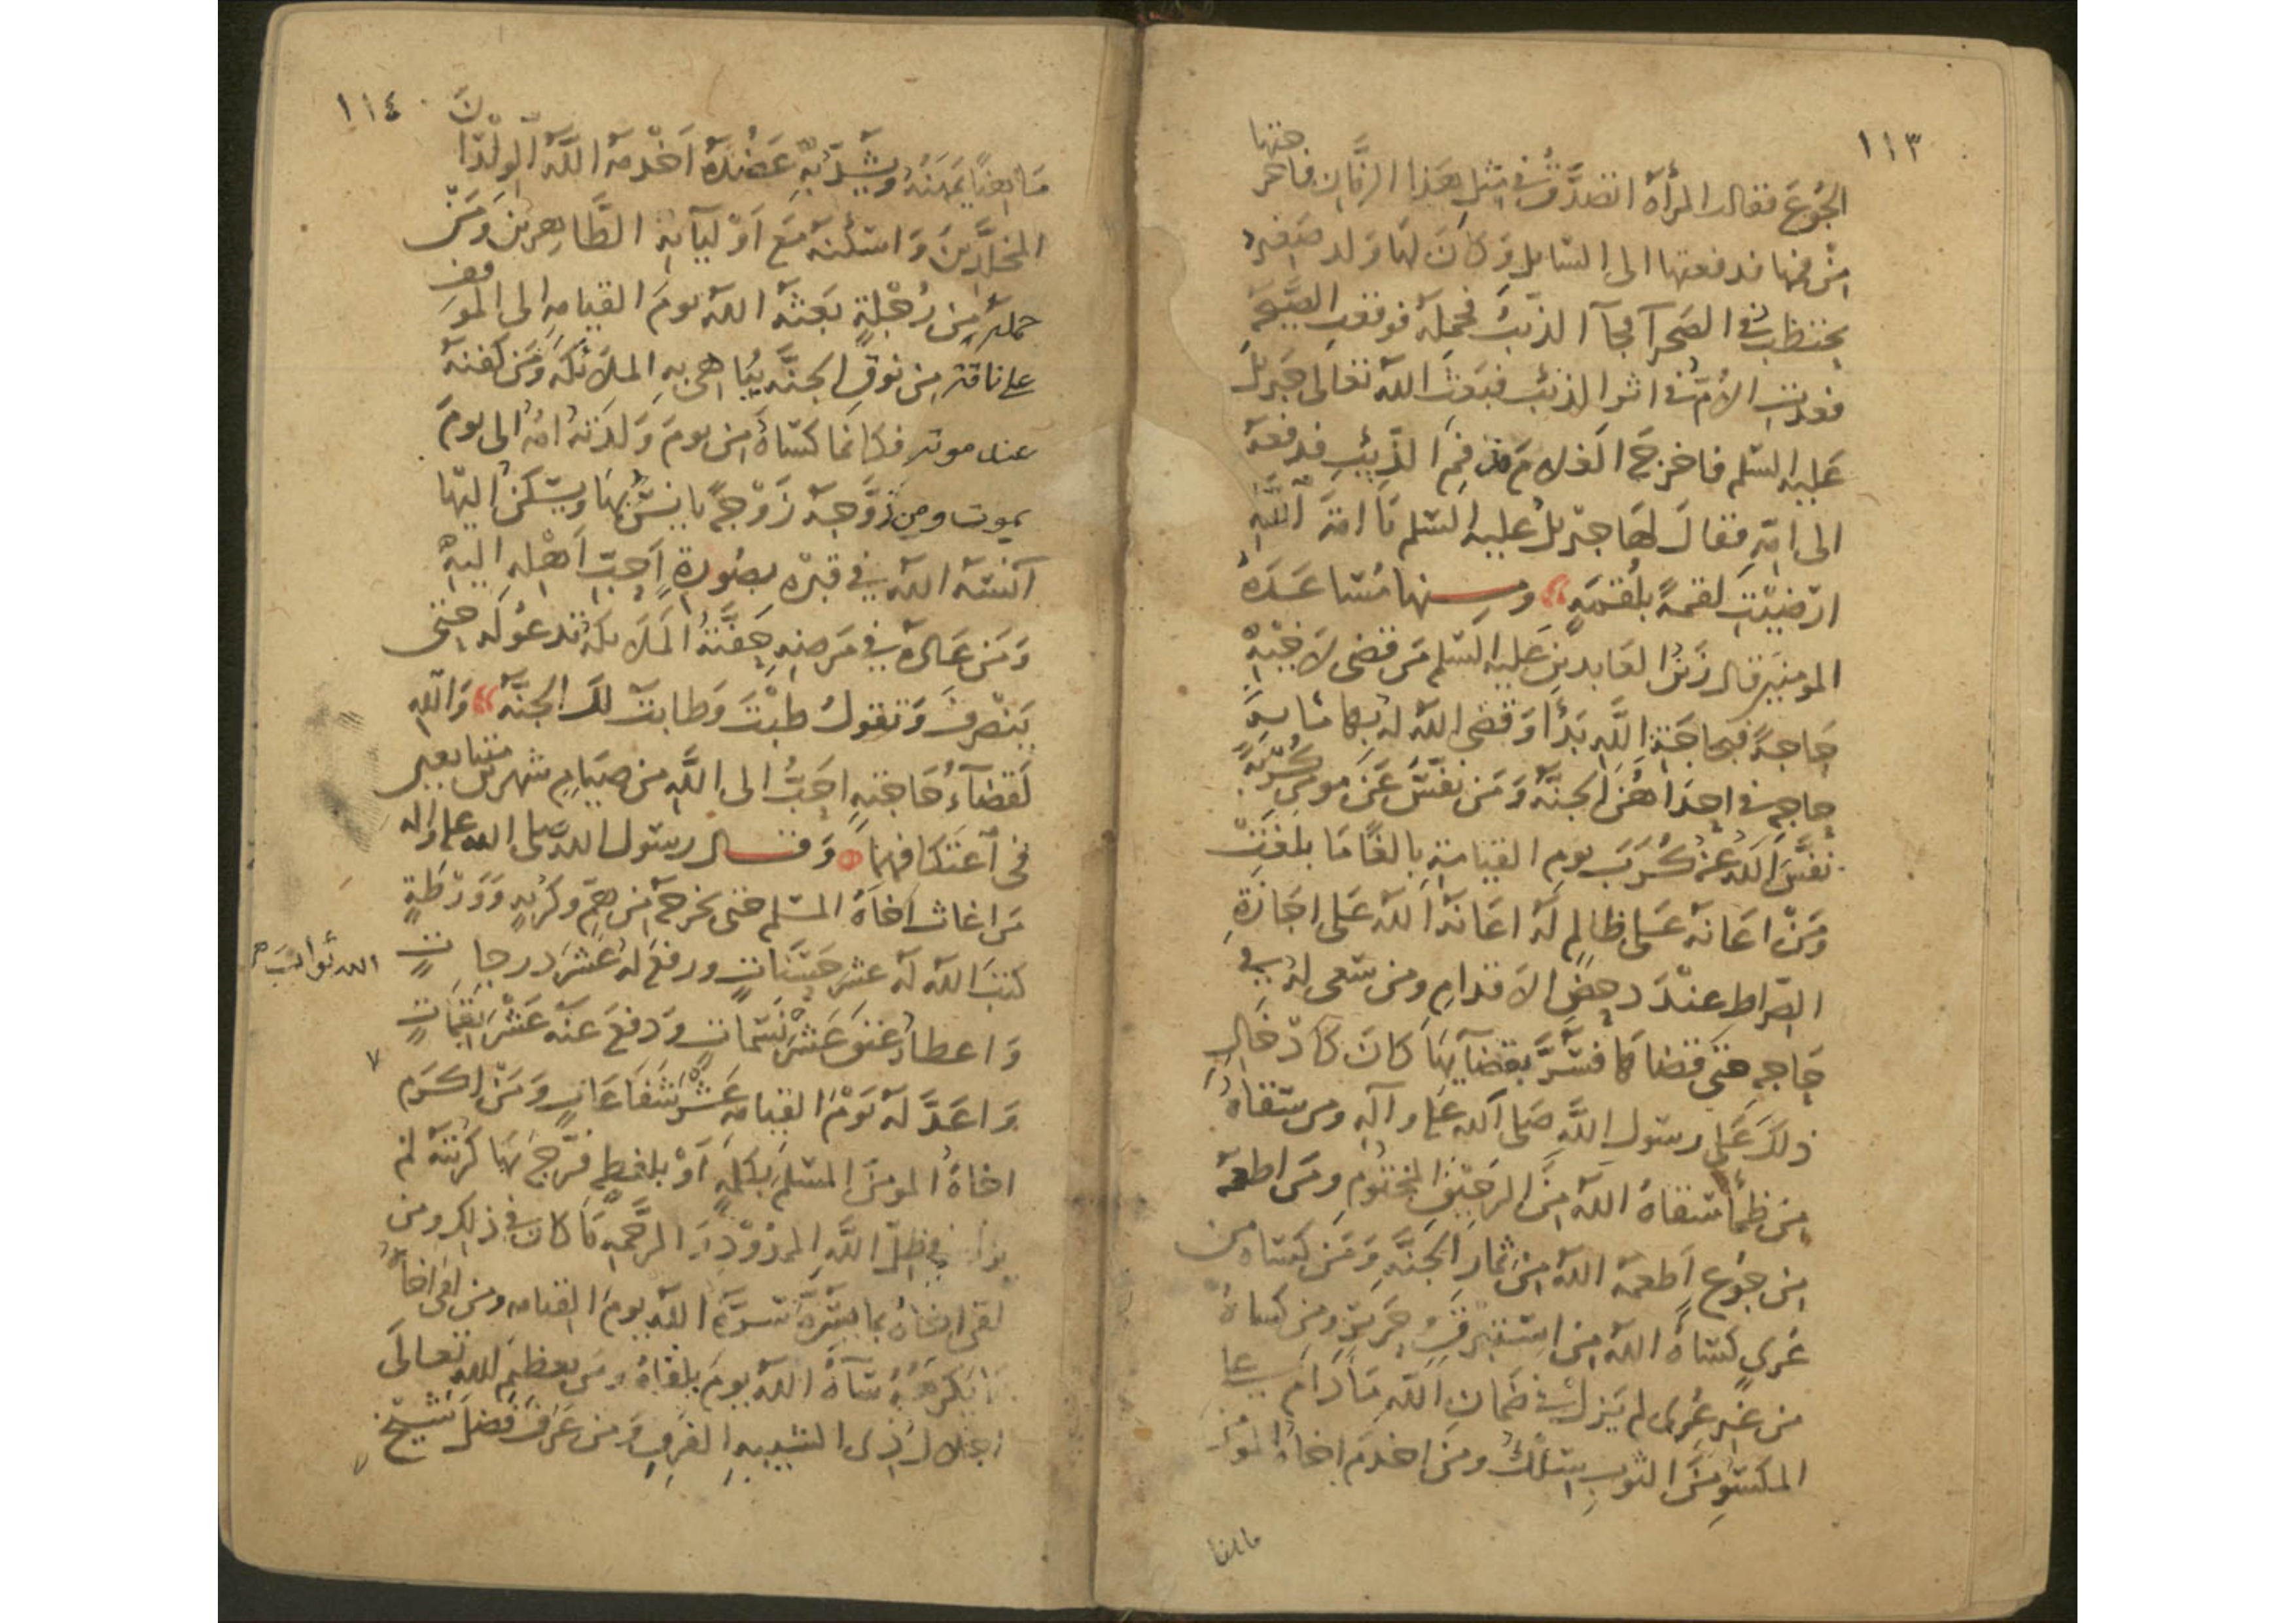 ١١٣
الجُوعَ فقالت المرأة اتصدَّق في مثل هذا الزمان فاخر
جتها
من فيها فدفعتها الى السايل وَكانَ لها ولد صغير
يحتطب في الصحرآ فجآ الذئب فحمله فوقعت الصَّيحة
فعدت الأم في اثر الذئب فبعث الله تعالى جبريل
عليه السلم فاخرج الغلام من فم الذئب فدفعه
الى امه فقال لها جبريل عليه السلم يا امة الله
ارضيت لقمةً بلقمه ومنها مساعدة
المومنين قال زين العابدين عليه السلم من قضى لاخيه
حاجةً فبحاجة الله بدأ وقضى الله له بها مايه
حاجه في احداهن الجنة ومن نفس عن مومن كُربةً
نفس الله عنه كُرب يوم القيامة بالغًا ما بلغت
ومن اعانه على ظالم له اعانه الله على اجازة
الصراط عند دحض الاقدام ومن سعى له في
حاجه حتى قضاها فسر بقضايها كان كادخال
ذلك على رسول الله صلى الله عليه وآله ومن سقاه
من ظمأ سقاه الله من الرحيق المختوم ومن اطعمه
من جوع اطعمه الله من ثمار الجنة ومن كساه من
عُري كساه الله من استبرق وحرير ومن كساه
من غير عرى لم يزل في ضمان الله ما دام على
المكسو من الثوب سلك ومن اخدم اخاه المومن
١١٤
مَا يعنيا يمهنه ويشد به عضده اخدمه الله الولدان
المخلَّدين واسكنه مع اوليآيه الطاهرين ومن
حمله من رُجْلةٍ بعثه الله يوم القيامه الى الموقف
على ناقة من نوق الجنة يباهى به الملائكة ومن كفنه
عند موته فكانما كساه من يوم ولدته امه الى يوم
يموت ومن زوَّجه زوجةً يانس بها ويسكن اليها
آنسه الله في قبره بصورة احب اهله اليه
ومن عاده في مرضه حفته الملايكة تدعو له حتى
ينصرف وتقول طبت وطابت لك الجنة والله
لقضآءُ حاجته احب الى الله من صيام شهرين متتابعين
في اعتكافهما وقال رسول الله صلى الله عليه واله
من اغاث اخاه المسلم حتى يخرجه من هم وكربه وورطة
كتب الله له عشر حسنات ورفع له عشر درجات
واعطاه عتق عشر نسمات ودفع عنه عشر نقمات
واعدَّ له يوم القيامه عشر شفاعات ومن اكرم
اخاه المومن المسلم بكلمه او بلفظه فرّج بها كربته لم
يزل في ظل الله الممدود الرحمه ما كان في ذلك ومن
لقي اخاه بما يسره سره الله يوم القيامه ومن لقي اخاه
بما يكرهه سآه الله يوم يلقاه ومن يعظم لله تعالى
اجلال ذى الشيبه ومن عرف فضل شيخ